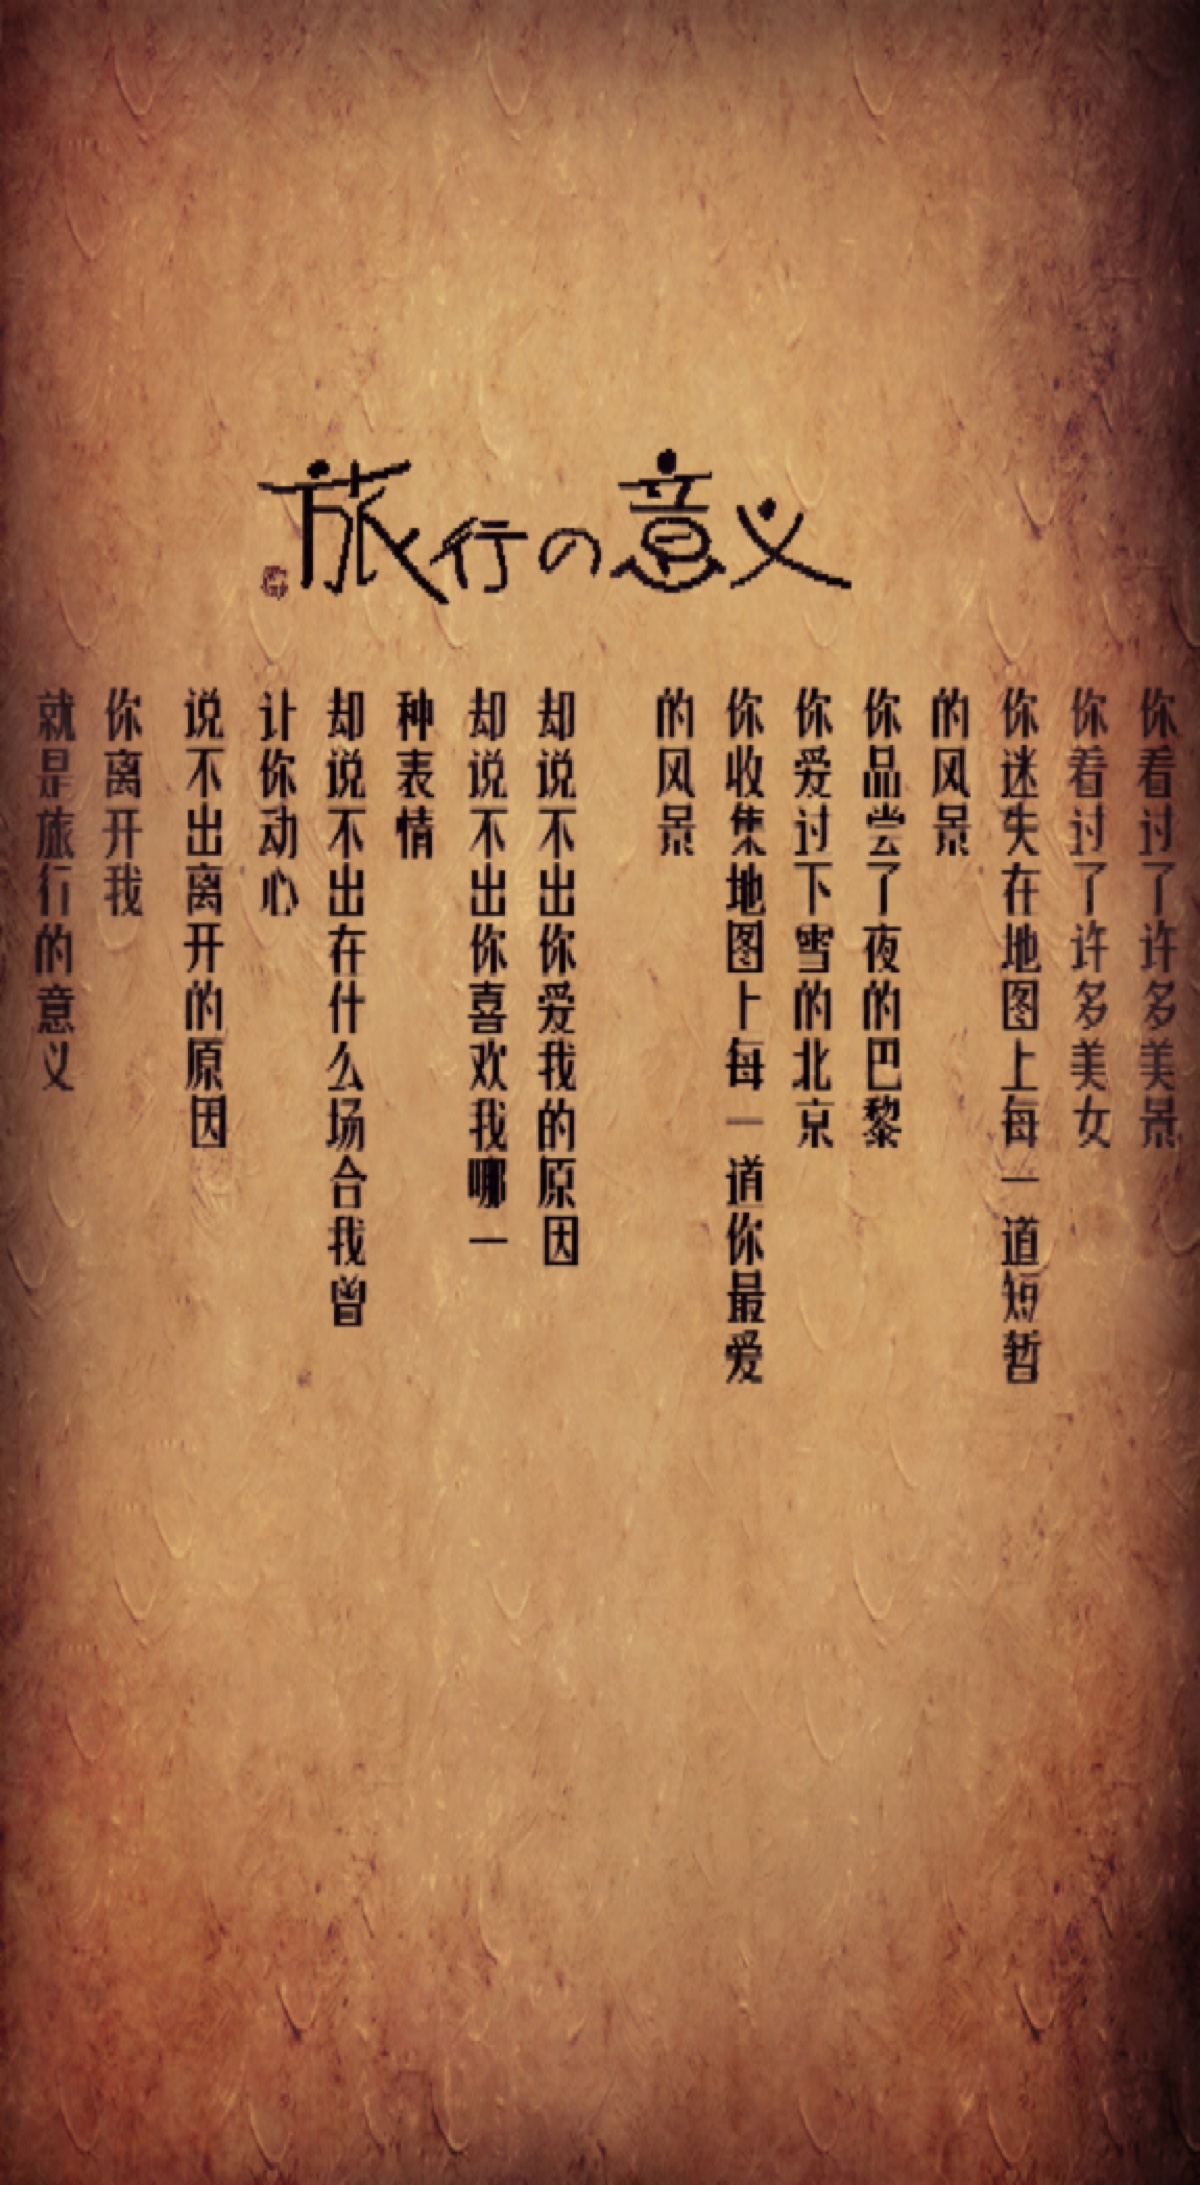 旅行の意义
你看过了许多美景
你看过了许多美女
你迷失在地图上每一道短暂
的风景
你品尝了夜的巴黎
你爱过下雪的北京
你收集地图上每一道你最爱
的风景
却说不出你爱我的原因
却说不出你喜欢我哪一
种表情
却说不出在什么场合我曾
让你动心
说不出离开的原因
你离开我
就是旅行的意义